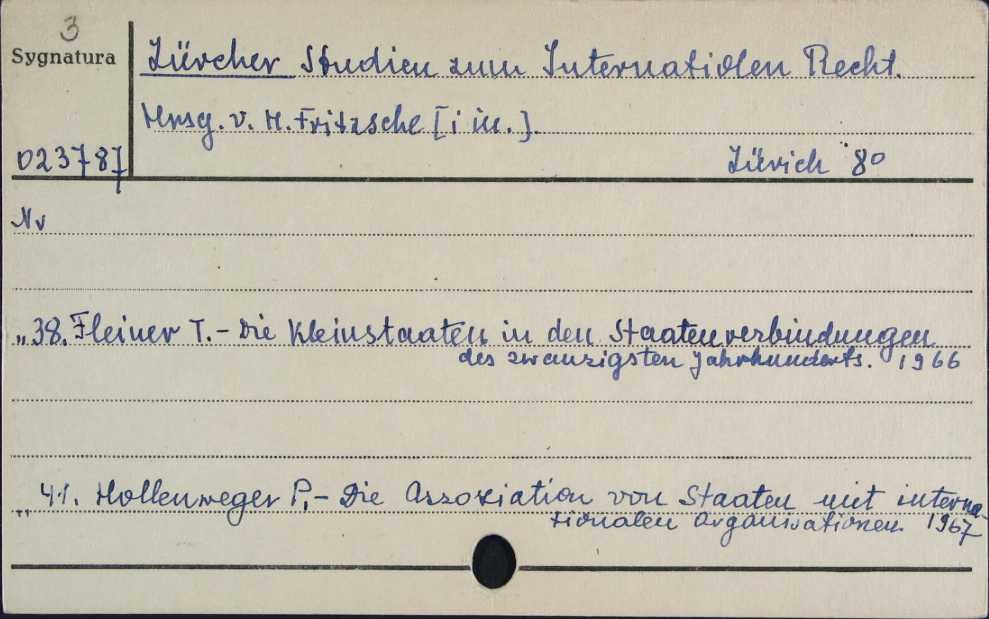 3
Sygnatura
023787
Zürcher Studien zum Internatiolen Recht.
Hrsg. v. H. Fritzsche [i in.]
Zürich 8°
Nr
„ 38. Fleiner T. - Die Kleinstaaten in den Staatenverbindungen
des zwanzigsten Jahrhunderts. 1966
„ 41. Hollenweger P. - Die Assoxiation von Staaten mit interna-
tionalen Organisationen 1967